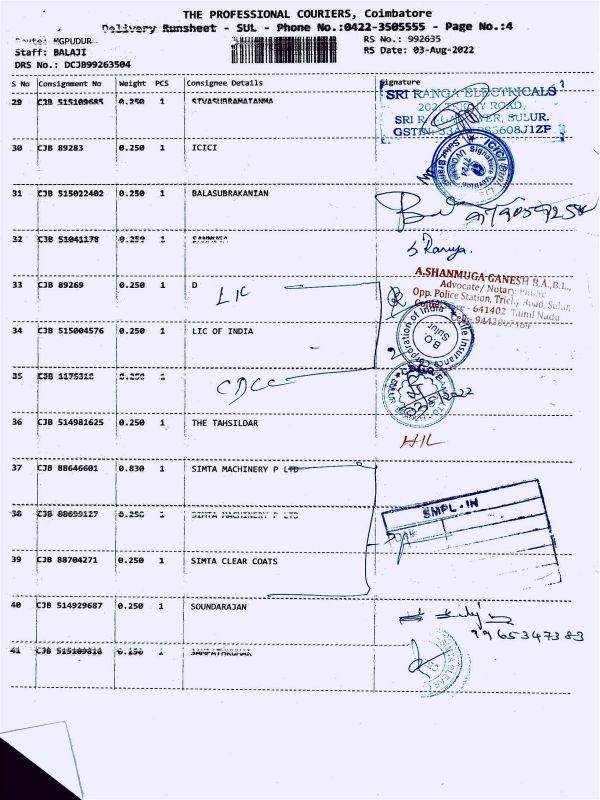 THE PROFESSIONAL COURIERS, Coimbatore
Delivery Runsheet - SUL - Phone No.:0422-3505555 - Page No.:4
Route: MGPUDUR
RS No.: 992635
Staff: BALAJI
RS Date: 03-Aug-2022
DRS No.: DCJB99263504
S No Consignment No Weight PCS Consignee Details Signature
29 CJB 515109685 0.250 1 SIVASUBRAMATANMA
SRI RANGA ELECTRICALS
ROAD,
SULUR.
30 CJB 89283 0.250 1 ICICI
31 CJB 515022402 0.250 1 BALASUBRAKANIAN
32 CJB 51041178 0.250 1
S Ranya.
33 CJB 89269 0.250 1 D
LIC
A.SHANMUGA GANESH B.A.,B.L.,
Advocate/ Notary Public
Opp. Police Station, Trichy Road, Sulur,
641402 Tamil Nadu
34 CJB 515004576 0.250 1 LIC OF INDIA
Life Insurance Corporation of India
B.O.
Sulur
35 CJB 1175318 0.250 1
CDCC
36 CJB 514981625 0.250 1 THE TAHSILDAR
37 CJB 88646601 0.830 1 SIMTA MACHINERY P LTD
38 CJB 88699127 0.250 1 SIMTA MACHINERY P LTD
SMPL.-IN
39 CJB 88704271 0.250 1 SIMTA CLEAR COATS
40 CJB 514929687 0.250 1 SOUNDARAJAN
9965347383
41 CJB 515109818 0.150 1 SAMPATHKUMAR